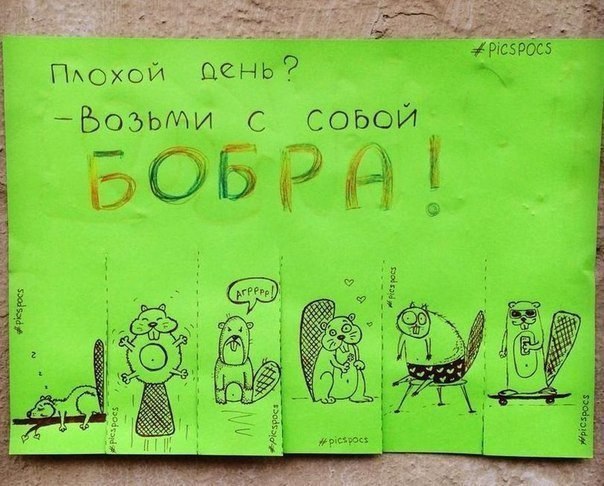 #picspocs
Плохой день?
-Возьми с собой
БОБРА!
#picspocs
z z
#picspocs
Агрррр!
#picspocs
#picspocs
#picspocs
#picspocs